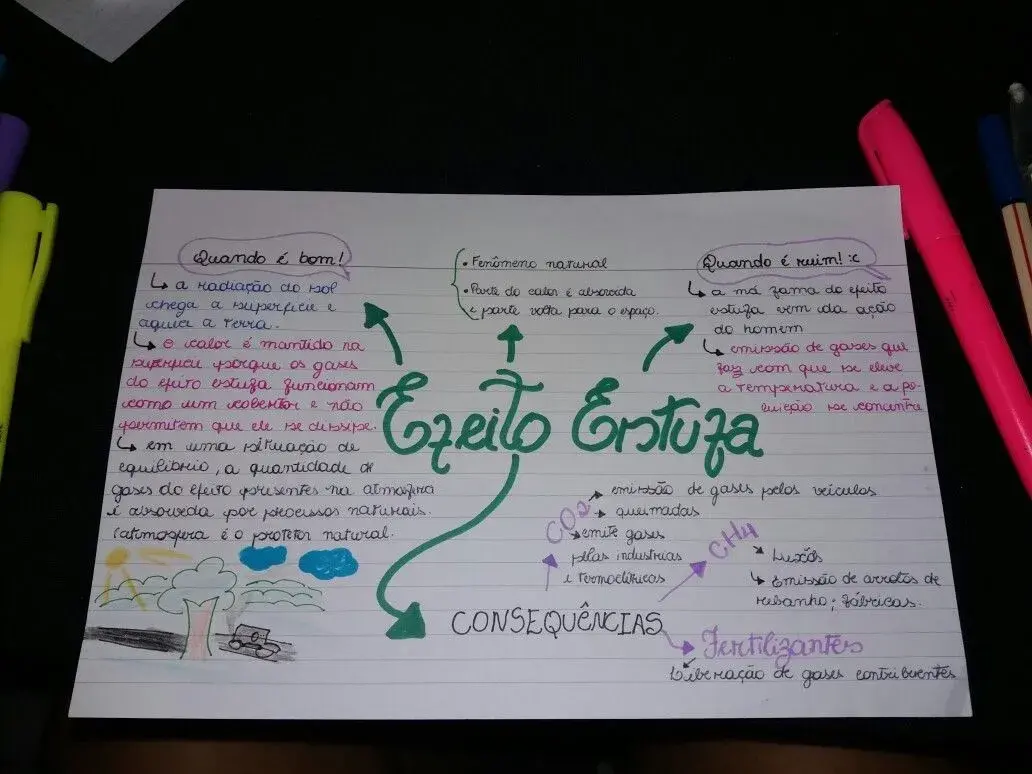 Quando é bom!
↳ a radiação do sol
chega a superfície e
aquece a Terra.
↳ o calor é mantido na
superfície porque os gases
do efeito estufa funcionam
como um cobertor e não
permitem que ele se dissipe.
↳ em uma situação de
equilíbrio, a quantidade de
gases do efeito presentes na atmosfera
é absorvida por processos naturais.
(atmosfera é o protetor natural.
• Fenômeno natural
• Parte do calor é absorvida
e parte volta para o espaço.
Quando é ruim! :c
↳ a má fama do efeito
estufa vem da ação
do homem
↳ emissão de gases que
faz com que se eleve
a temperatura e a po-
luição se
Efeito Estufa
CONSEQUÊNCIAS
CO2
emissão de gases pelos veículos
queimadas
emite gases
pelas industrias
e termoelétricas
CH4
Lixões
↳ Emissão de arrotos de
rebanho; fábricas.
Fertilizantes
Liberação de gases contribuentes